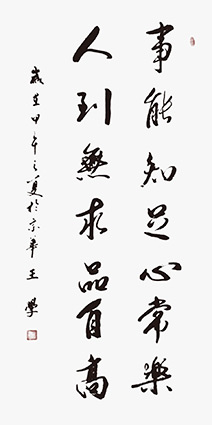 事能知足心常樂
人到無求品自高
歲在甲午之夏於京華王學